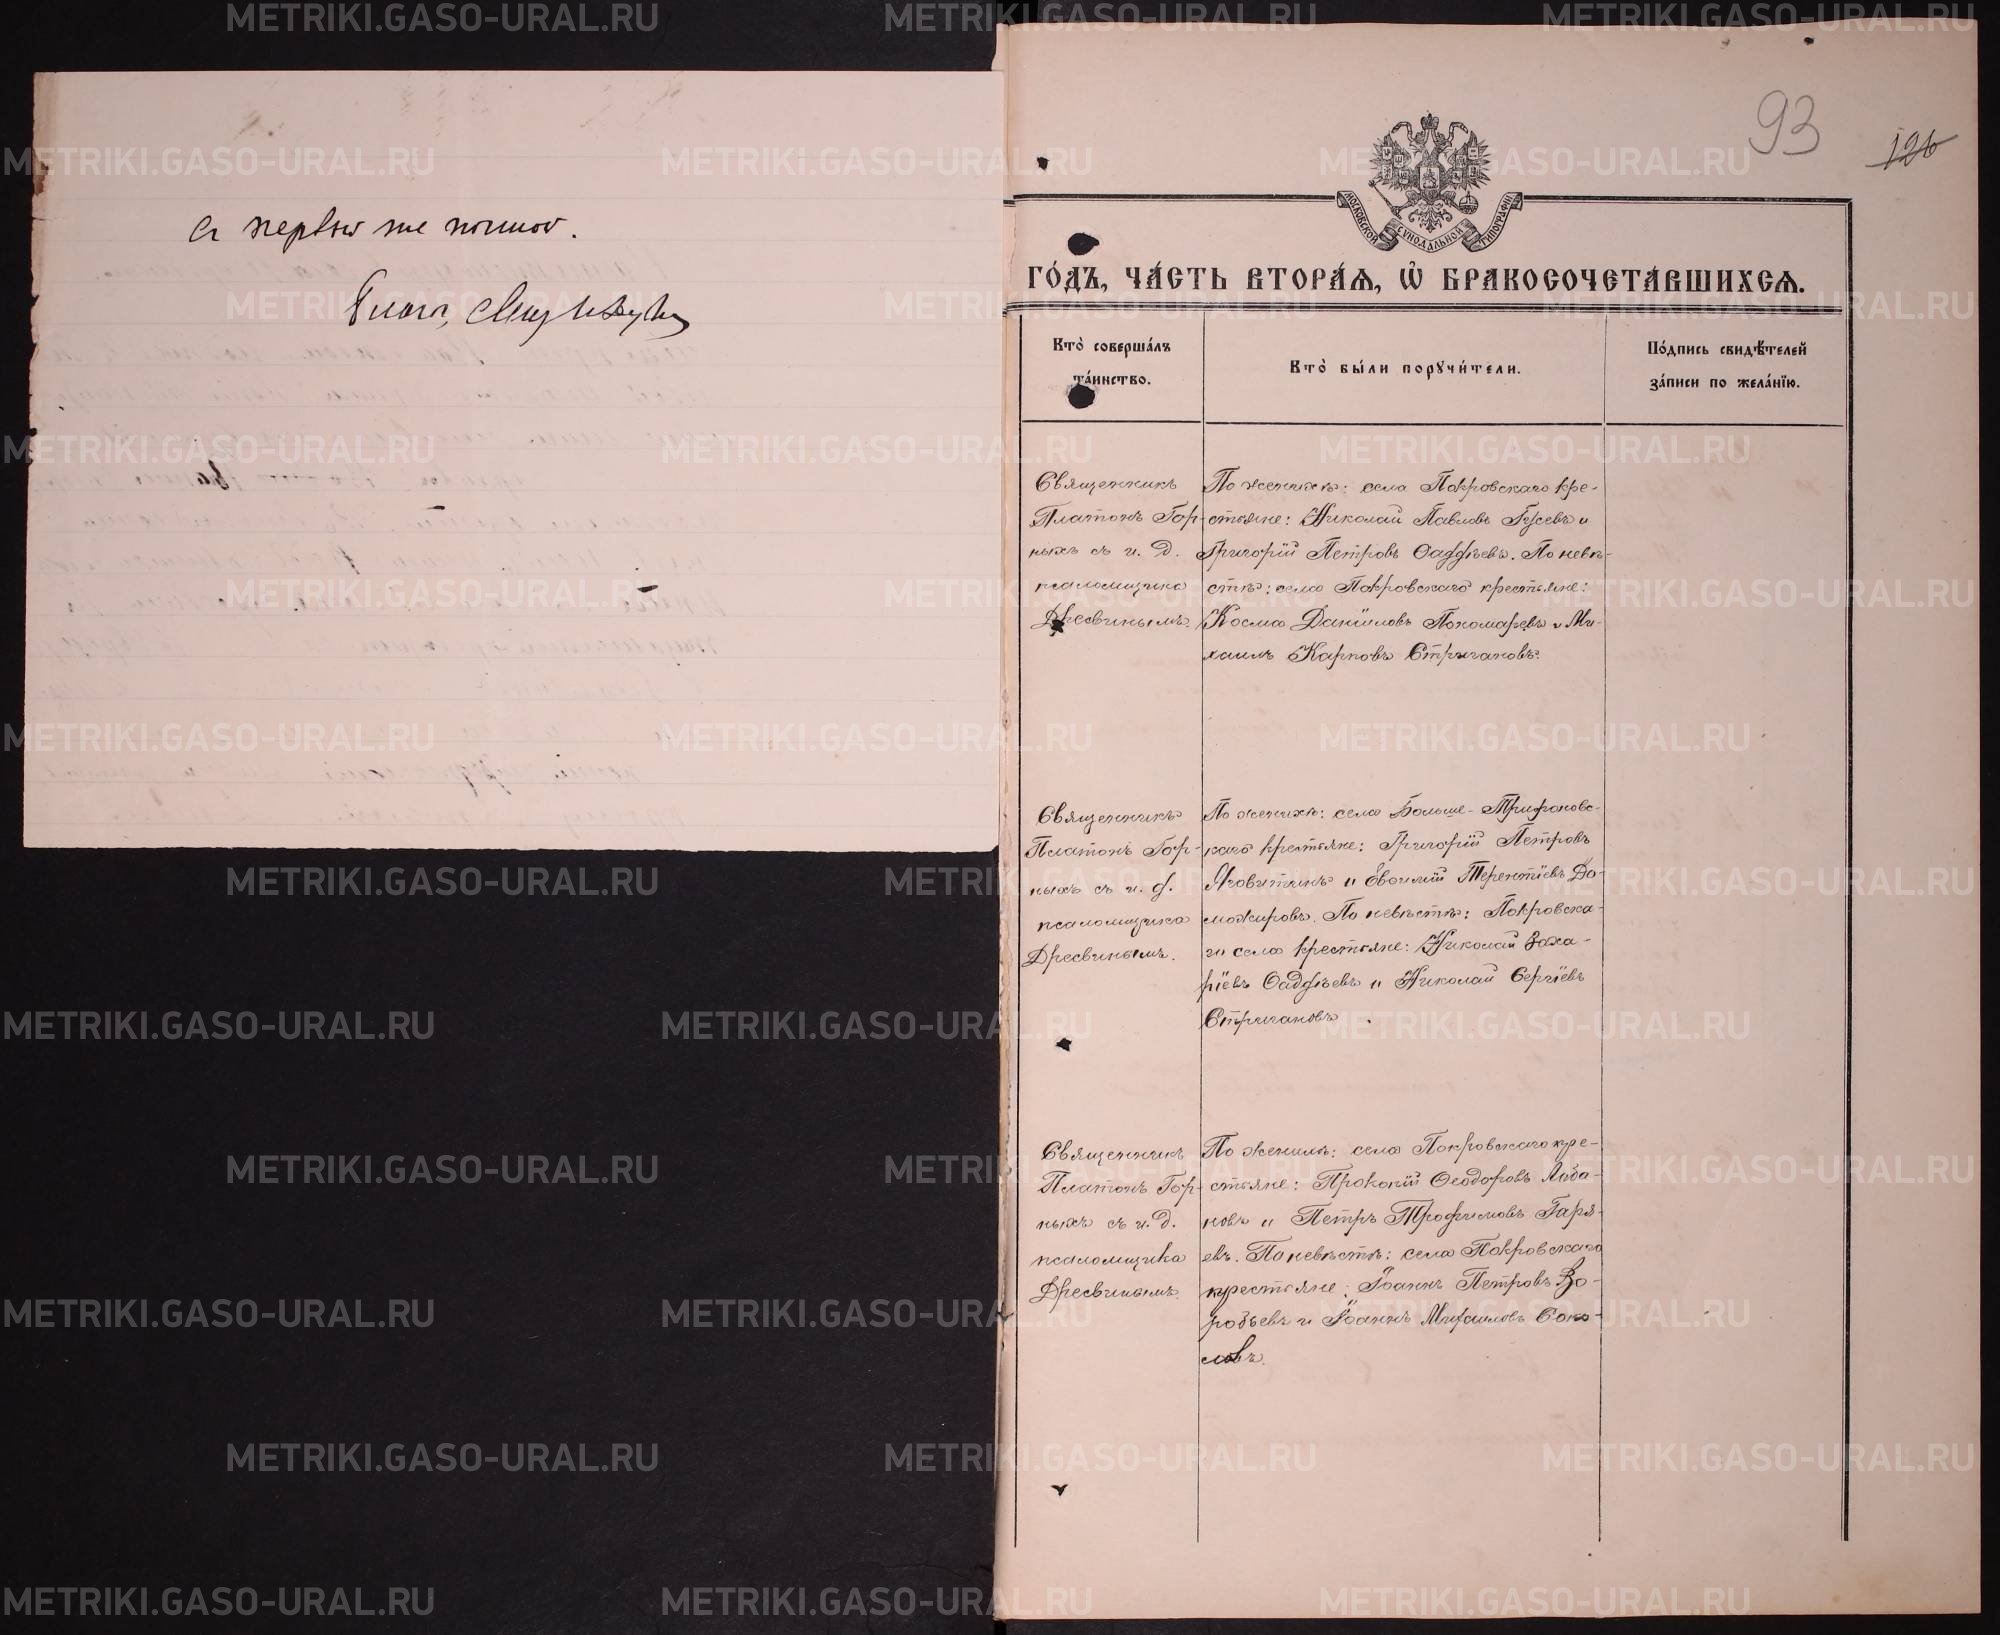 съ первой же почтой.
Благ.
93
126
МОСКОВСКОЙ СѴНОДАЛЬНОЙ ТИПОГРАФІИ
ГО́ДЪ, ЧА́СТЬ ВТОРА́Я, Ѽ БРАКОСОЧЕТА́ВШИХСЯ.
Кто̀ соверша́лъ
та́инство.
Кто̀ бы́ли порꙋчи́тели.
По́дпись свидѣ́телей
за́писи по жела́нїю.
Священникъ
Платонъ Гор-
ныхъ съ и. д.
псаломщика
Дресвинымъ.
По женихѣ: села Покровскаго кре-
стьяне: Николай Павловъ Гусевъ и
Григорій Петровъ Ѳаддѣевъ. По невѣ-
стѣ: села Покровскаго крестьяне:
Косма Даніиловъ Пономаревъ и Ми-
хаилъ Карповъ Стригановъ.
Священникъ
Платонъ Гор-
ныхъ съ и. д.
псаломщика
Дресвинымъ.
По женихѣ: села Больше-Трифоновс-
каго крестьяне: Григорій Петровъ
Яговитинъ и Евѳимій Терентіевъ До-
можировъ. По невѣстѣ: Покровска-
го села крестьяне: Николай Заха-
ріевъ Ѳаддѣевъ и Николай Сергіевъ
Стригановъ
Священникъ
Платонъ Гор-
ныхъ съ и. д.
псаломщика
Дресвинымъ.
По женихѣ: села Покровскаго кре-
стьяне: Прокопій Ѳеодоровъ Лоба-
новъ и Петръ Трофимовъ Гаря-
евъ. По невѣстѣ: села Покровскаго
крестьяне: Іоаннъ Петровъ Во-
робьевъ и Іоаннъ Михаиловъ Соко-
ловъ.
METRIKI.GASO-URAL.RU